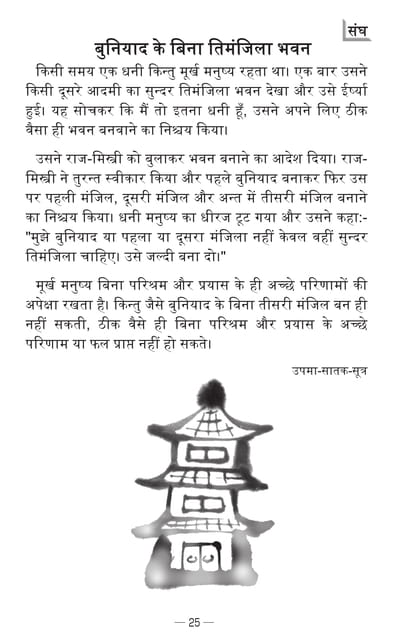 संघ
बुनियाद के बिना तिमंजिला भवन
किसी समय एक धनी किन्तु मूर्ख मनुष्य रहता था। एक बार उसने
किसी दूसरे आदमी का सुन्दर तिमंजिला भवन देखा और उसे ईर्ष्या
हुई। यह सोचकर कि मैं तो इतना धनी हूँ, उसने अपने लिए ठीक
वैसा ही भवन बनवाने का निश्चय किया।
उसने राज-मिस्त्री को बुलाकर भवन बनाने का आदेश दिया। राज-
मिस्त्री ने तुरन्त स्वीकार किया और पहले बुनियाद बनाकर फिर उस
पर पहली मंजिल, दूसरी मंजिल और अन्त में तीसरी मंजिल बनाने
का निश्चय किया। धनी मनुष्य का धीरज टूट गया और उसने कहा:-
"मुझे बुनियाद या पहला या दूसरा मंजिला नहीं केवल वहीं सुन्दर
तिमंजिला चाहिए। उसे जल्दी बना दो।"
मूर्ख मनुष्य बिना परिश्रम और प्रयास के ही अच्छे परिणामों की
अपेक्षा रखता है। किन्तु जैसे बुनियाद के बिना तीसरी मंजिल बन ही
नहीं सकती, ठीक वैसे ही बिना परिश्रम और प्रयास के अच्छे
परिणाम या फल प्राप्त नहीं हो सकते।
उपमा-सातक-सूत्र
— 25 —